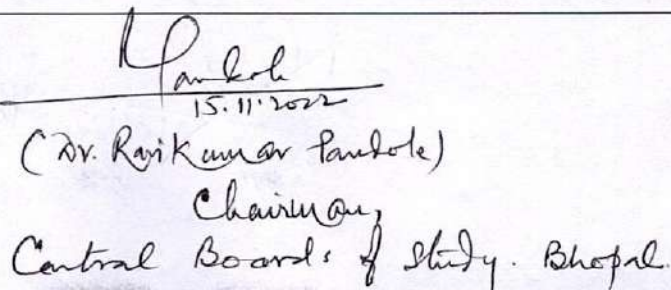 Pandole
15.11.2022
(Dr. Ravikumar Pandole)
Chairman,
Central Boards of Study. Bhopal